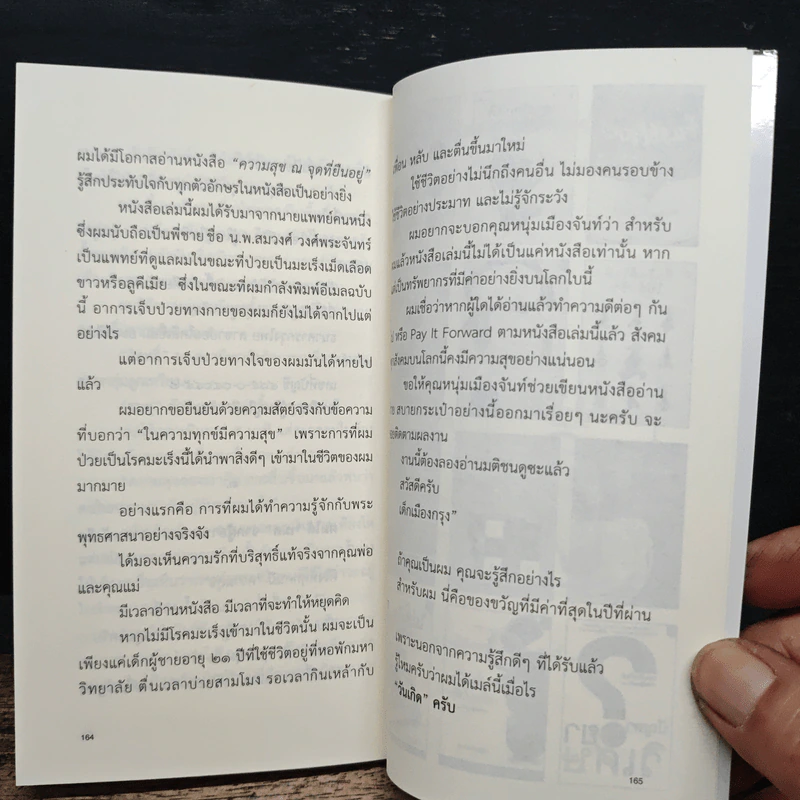 ผมได้มีโอกาสอ่านหนังสือ “ความสุข ณ จุดที่ยืนอยู่”
รู้สึกประทับใจกับทุกตัวอักษรในหนังสือเป็นอย่างยิ่ง
หนังสือเล่มนี้ผมได้รับมาจากนายแพทย์คนหนึ่ง
ซึ่งผมนับถือเป็นพี่ชาย ชื่อ น.พ.สมวงศ์ วงศ์พระจันทร์
เป็นแพทย์ที่ดูแลผมในขณะที่ป่วยเป็นมะเร็งเม็ดเลือด
ขาวหรือลูคีเมีย ซึ่งในขณะที่ผมกำลังพิมพ์อีเมลฉบับ
นี้ อาการเจ็บป่วยทางกายของผมก็ยังไม่ได้จากไปแต่
อย่างไร
แต่อาการเจ็บป่วยทางใจของผมมันได้หายไป
แล้ว
ผมอยากขอยืนยันด้วยความสัตย์จริงกับข้อความ
ที่บอกว่า “ในความทุกข์มีความสุข” เพราะการที่ผม
ป่วยเป็นโรคมะเร็งนี้ได้นำพาสิ่งดีๆ เข้ามาในชีวิตของผม
มากมาย
อย่างแรกคือ การที่ผมได้ทำความรู้จักกับพระ
พุทธศาสนาอย่างจริงจัง
ได้มองเห็นความรักที่บริสุทธิ์แท้จริงจากคุณพ่อ
และคุณแม่
มีเวลาอ่านหนังสือ มีเวลาที่จะทำให้หยุดคิด
หากไม่มีโรคมะเร็งเข้ามาในชีวิตนั้น ผมจะเป็น
เพียงแค่เด็กผู้ชายอายุ ๒๑ ปีที่ใช้ชีวิตอยู่ที่หอพักมหา
วิทยาลัย ตื่นเวลาบ่ายสามโมง รอเวลากินเหล้ากับ
164
เพื่อน หลับ และตื่นขึ้นมาใหม่
ใช้ชีวิตอย่างไม่นึกถึงคนอื่น ไม่มองคนรอบข้าง
ใช้ชีวิตอย่างประมาท และไม่รู้จักระวัง
ผมอยากจะบอกคุณหนุ่มเมืองจันท์ว่า สำหรับ
ผมแล้วหนังสือเล่มนี้ไม่ได้เป็นแค่หนังสือเท่านั้น หาก
แต่เป็นทรัพยากรที่มีค่าอย่างยิ่งบนโลกใบนี้
ผมเชื่อว่าหากผู้ใดได้อ่านแล้วทำความดีต่อๆ กัน
ไป หรือ Pay It Forward ตามหนังสือเล่มนี้แล้ว สังคม
สังคมบนโลกนี้คงมีความสุขอย่างแน่นอน
ขอให้คุณหนุ่มเมืองจันท์ช่วยเขียนหนังสืออ่าน
สบายกระเป๋าอย่างนี้ออกมาเรื่อยๆ นะครับ จะ
คอยติดตามผลงาน
งานนี้ต้องลองอ่านมติชนดูซะแล้ว
สวัสดีครับ
เด็กเมืองกรุง”
ถ้าคุณเป็นผม คุณจะรู้สึกอย่างไร
สำหรับผม นี่คือของขวัญที่มีค่าที่สุดในปีที่ผ่าน
เพราะนอกจากความรู้สึกดีๆ ที่ได้รับแล้ว
รู้ไหมครับว่าผมได้เมล์นี้เมื่อไร
“วันเกิด” ครับ
165